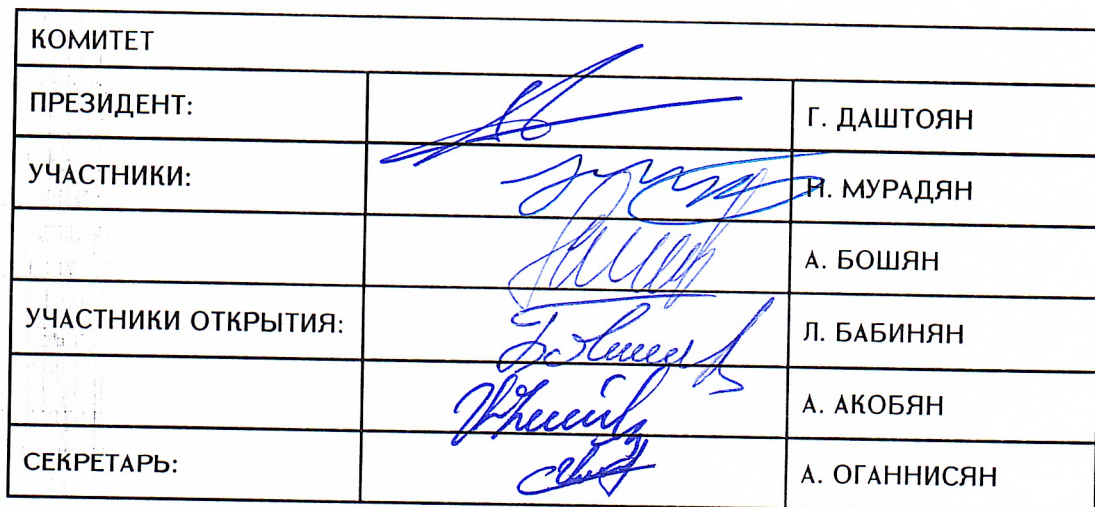 КОМИТЕТ
ПРЕЗИДЕНТ: Г. ДАШТОЯН
УЧАСТНИКИ: МУРАДЯН
А. БОШЯН
УЧАСТНИКИ ОТКРЫТИЯ: Л. БАБИНЯН
А. АКОБЯН
СЕКРЕТАРЬ: А. ОГАННИСЯН